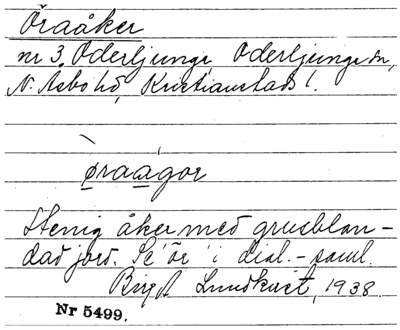 Öraåker
nr 3. Oderljunga, Oderljunga sn,
N. Åsbo hd, Kristianstads l.
øraågor
Stenig åker med grusblan-
dad jord. Se 'ör' i dial.-saml.
Birgit Lundkvist, 1938.
Nr 5499.